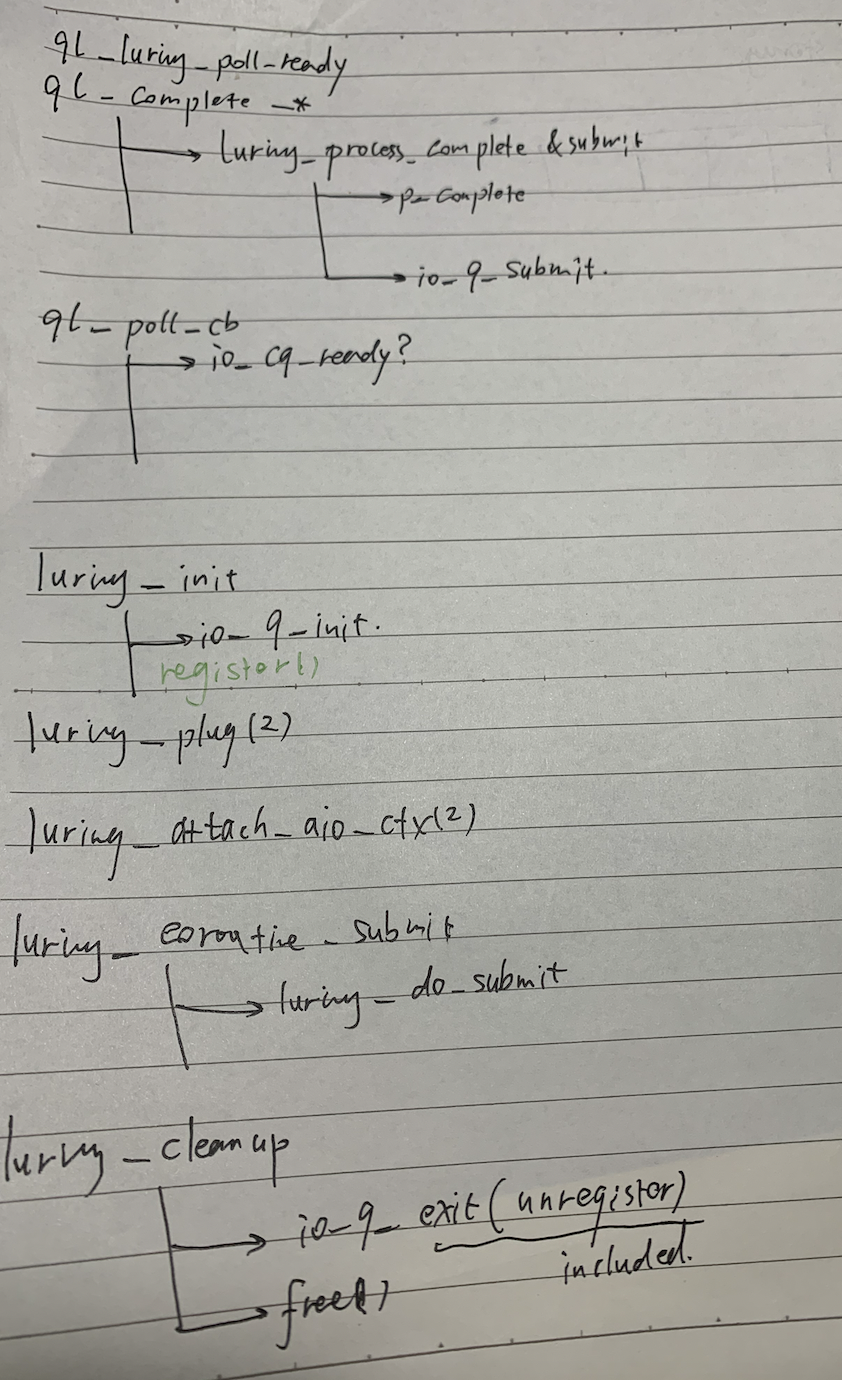 qL_luring_poll_ready
qL_complete_*
luring_process_complete & submit
p_complete
io_q_submit.
qL_poll_cb
io_cq_ready?
luring_init
io_q_init.
registor()
luring_plug(2)
luring_attach_aio_ctx(2)
luring_coroutine_submit
luring_do_submit
luring_cleanup
io_q_exit(unregistor)
included.
free()